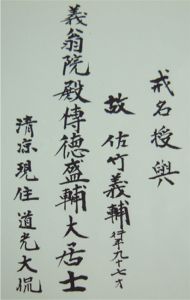 戒名授與
故 佐竹義輔 行年九十七才
義翁院殿傳德盛輔大居士
清凉現住 道光大侃